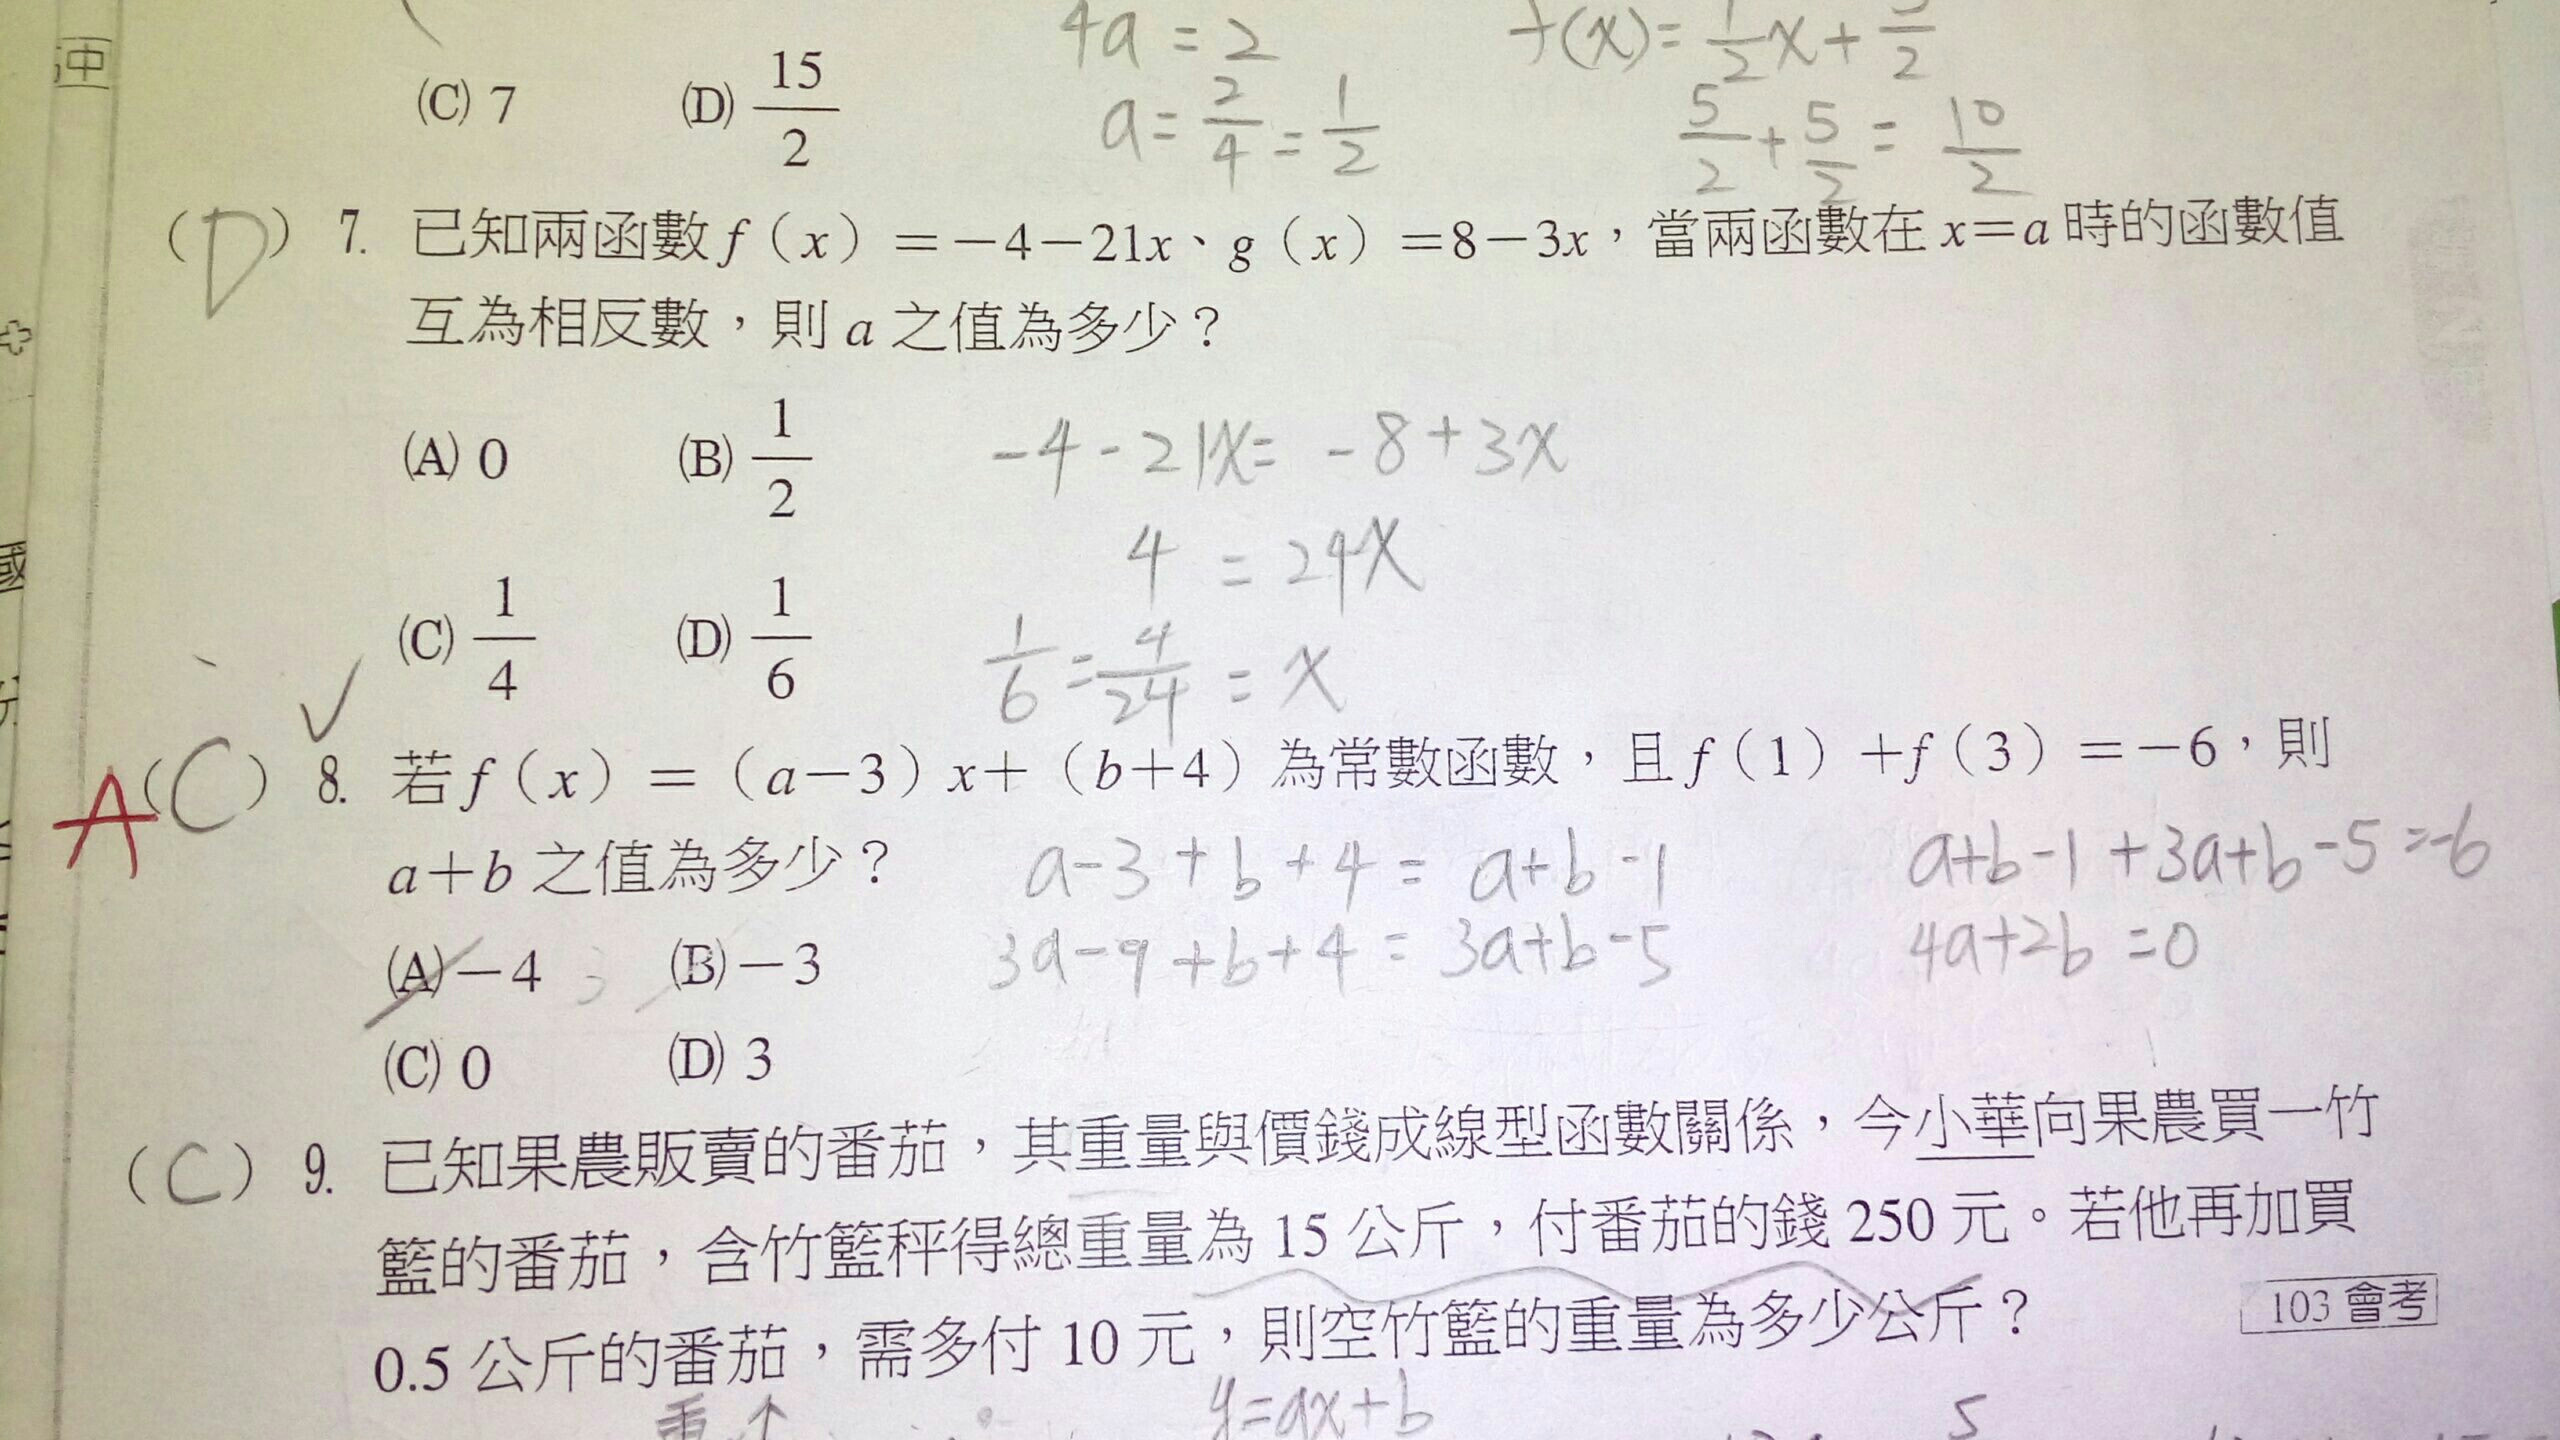 4a = 2
f(x) = 1/2 x + 5/2
(C) 7 (D) 15/2
a = 2/4 = 1/2
5/2 + 5/2 = 10/2
(D) 7. 已知兩函數 f(x)=-4-21x、g(x)=8-3x,當兩函數在 x=a 時的函數值
互為相反數,則 a 之值為多少?
(A) 0 (B) 1/2
-4-21x = -8+3x
4 = 24x
(C) 1/4 (D) 1/6
1/6 = 4/24 = x
A (C) 8. 若 f(x)=(a-3)x+(b+4)為常數函數,且 f(1)+f(3)=-6,則
a+b 之值為多少?
a-3+b+4 = a+b-1
a+b-1+3a+b-5=-6
(A) -4 (B) -3
3a-9+b+4 = 3a+b-5
4a+2b=0
(C) 0 (D) 3
(C) 9. 已知果農販賣的番茄,其重量與價錢成線型函數關係,今小華向果農買一竹
籃的番茄,含竹籃秤得總重量為 15 公斤,付番茄的錢 250 元。若他再加買
0.5 公斤的番茄,需多付 10 元,則空竹籃的重量為多少公斤?
103 會考
重 ↑
y=ax+b
5